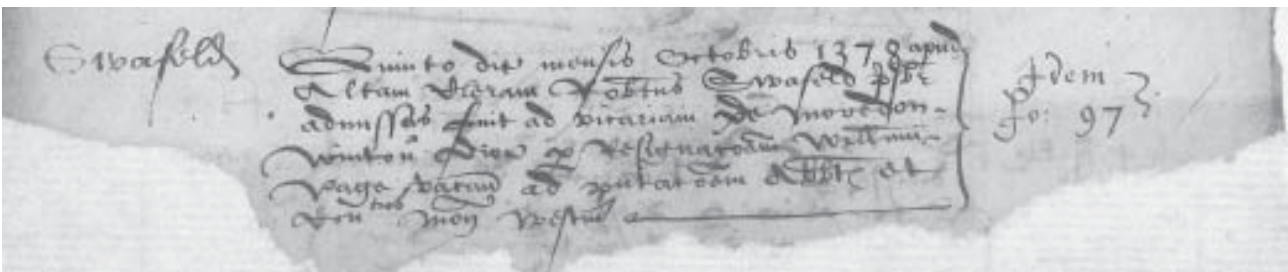 Swafeld
Quinto die mensis Octobris 1378 apud
Altam Robtus Swafeld psbr
admissus fuit ad vicariam de Moredon
Winton Dioc p Resignacoem Willmi
Page vacan ad pntacoem Abbtis et
Con mon Westm
Idem
fo: 97